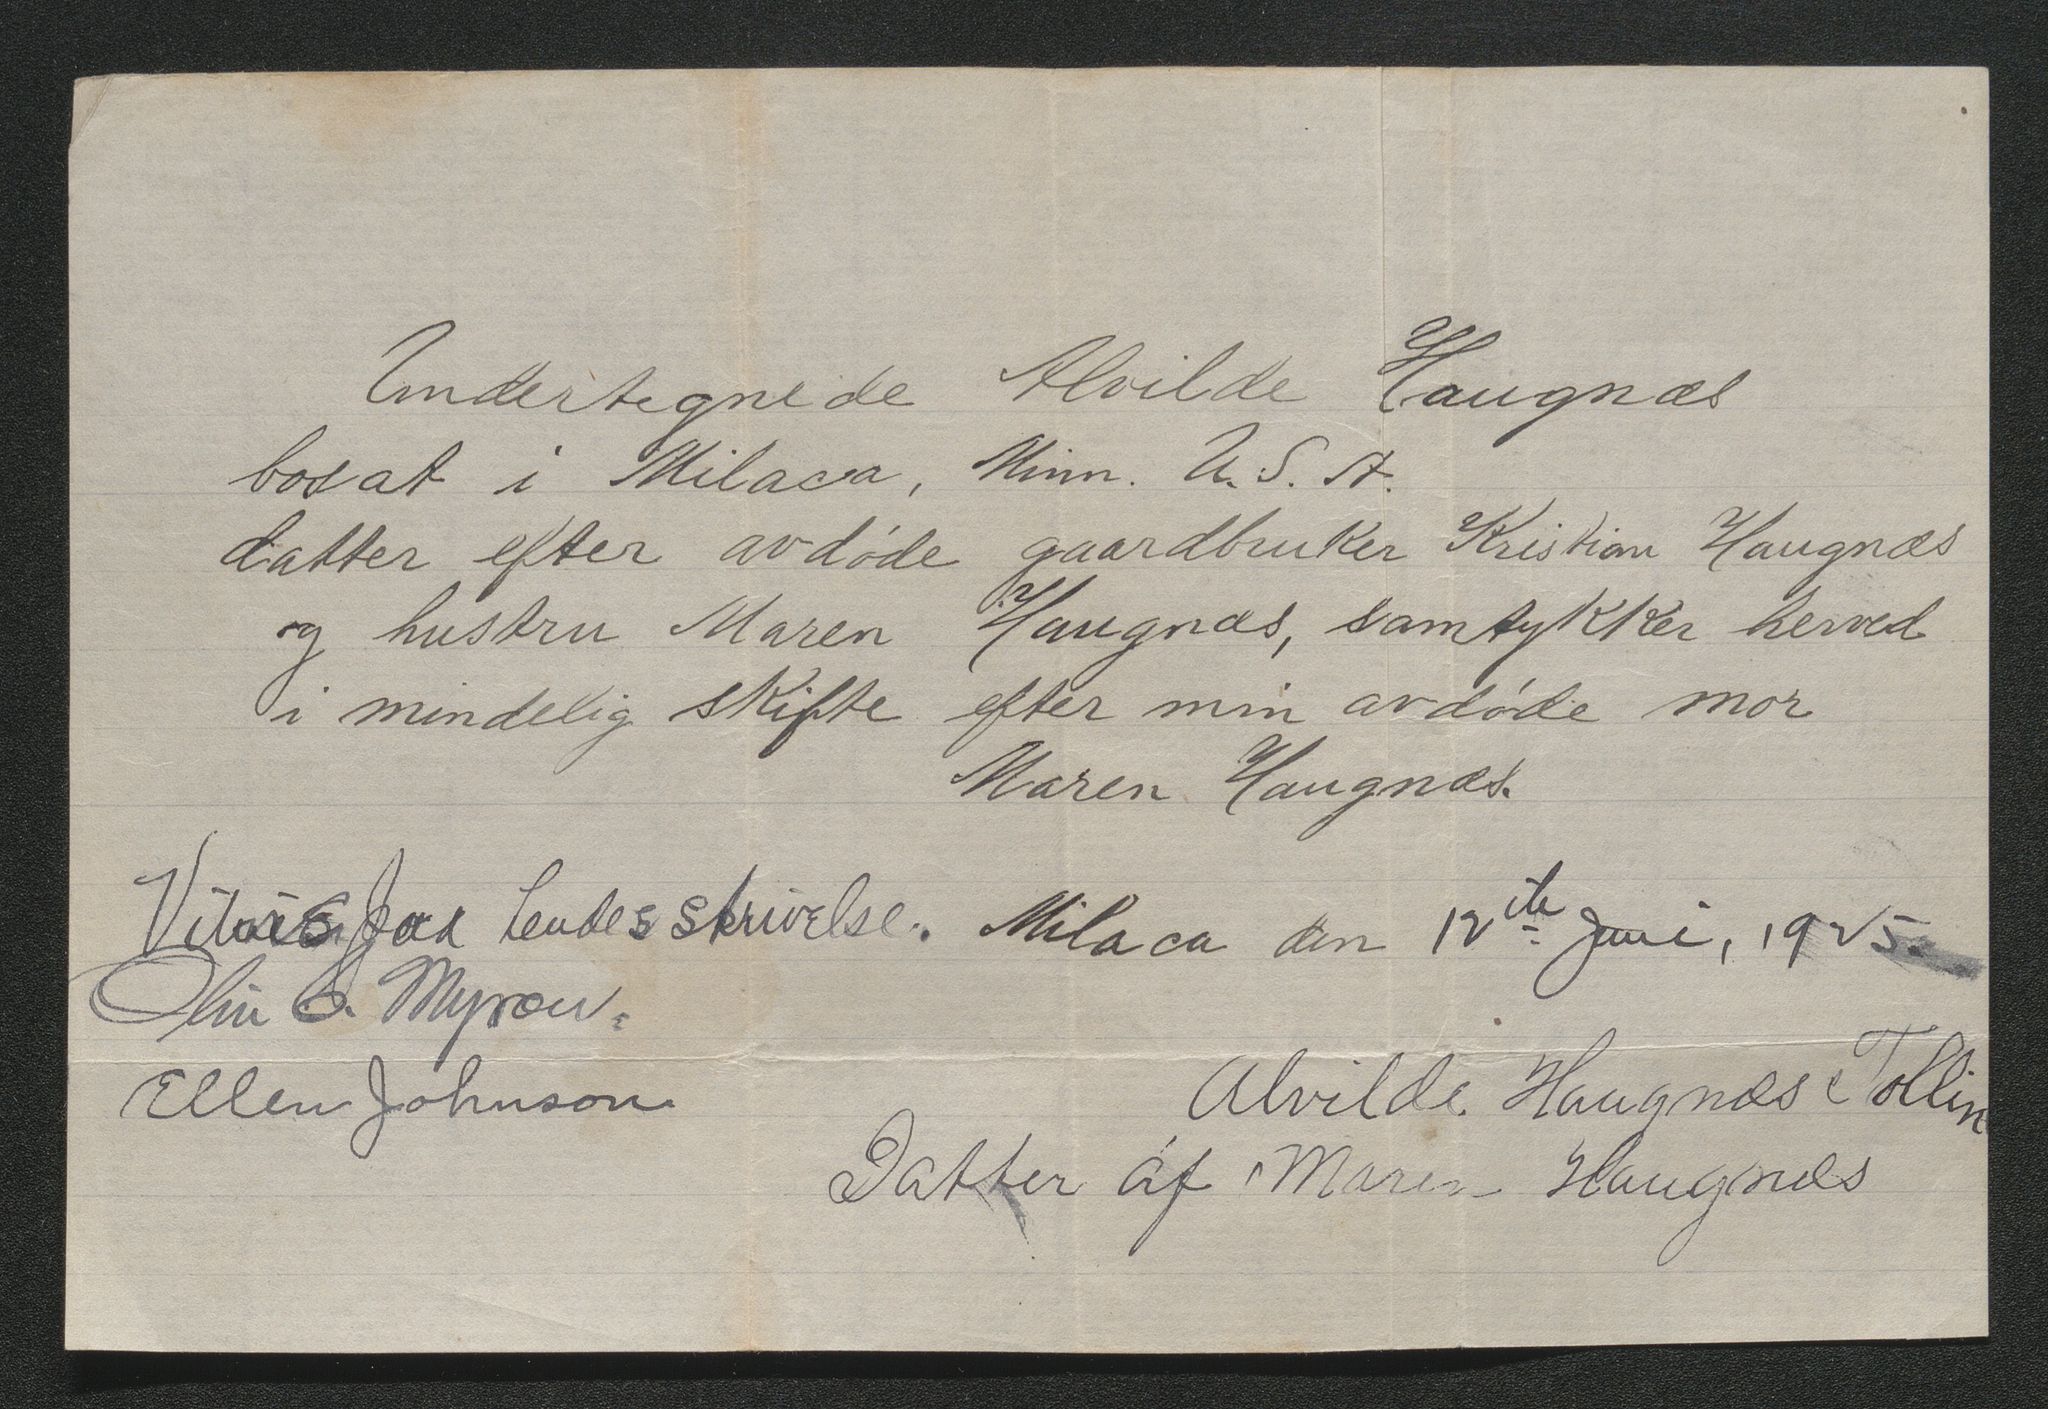 Undertegnede Alvilde Haugnæs
bosat i Milaca, Minn. U.S.A.
datter efter avdøde gaardbruker Kristian Haugnæs
og hustru Maren Haugnæs, samtykker herved
i mindelig skifte efter min avdøde mor
Maren Haugnæs.
Vitnes paa skrivelse. Milaca den 12te Juni, 1925
Olin Myron.
Ellen Johnson
Alvilde Haugnæs Tollin
Datter af Maren Haugnæs